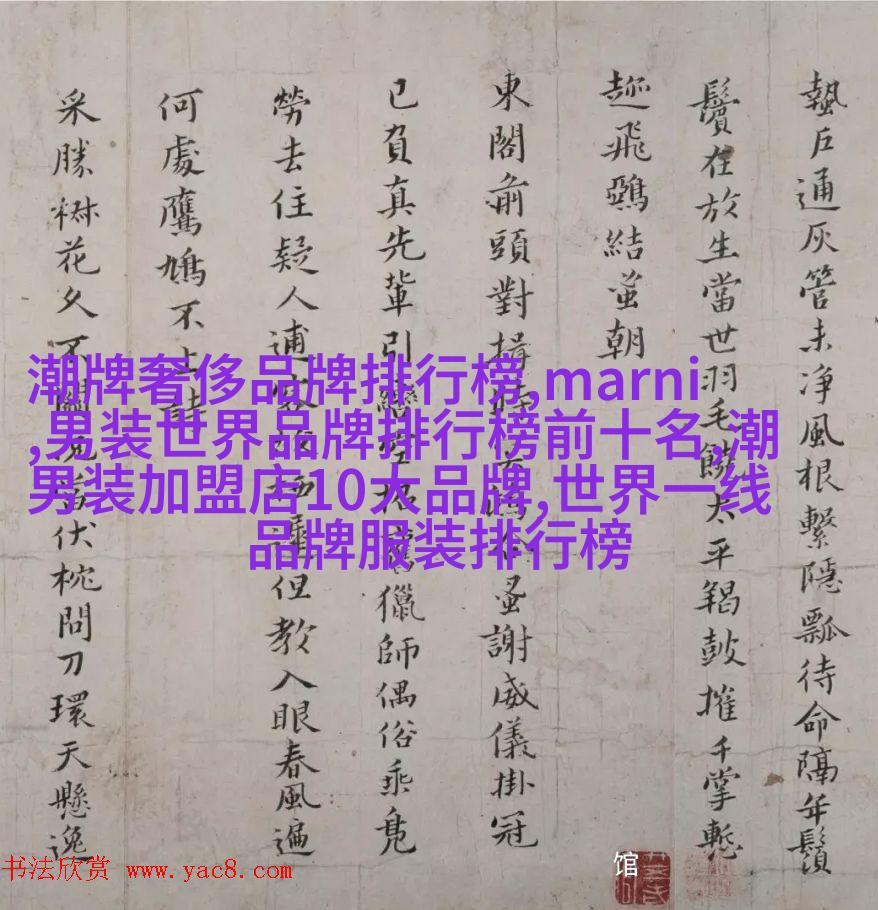 蟄戶通灰管未净風根繫隱瓢待命隔年鬚
鬢在放生當世羽毛饒太平羯鼓摧千掌慙
飛結蚤朝
東閣前頭對揖蚤謝威儀掛冠
已負真先輩引獵師偶俗乘
勞去住疑人逋但教入眼春風遍
何處鷹鳩不上詩
采勝花久不關伏枕問刀環天懸逸
潮牌奢侈品牌排行榜,marni
,男装世界品牌排行榜前十名,潮
男装加盟店10大品牌,世界一线
品牌服装排行榜
馆
书法欣赏 www.yac8.com